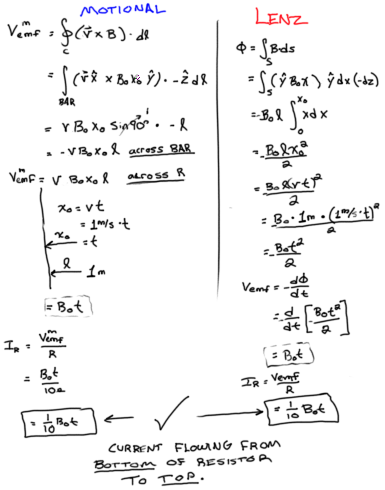 MOTIONAL
V^m_emf = ∮_C (v⃗ × B) · dl
= ∫_BAR (v⃗ x̂ × B₀x₀ ŷ) · -ẑ dl
= v B₀ x₀ Sin 90° · -l
= -v B₀ x₀ l across BAR
V^m_emf = v B₀ x₀ l across R
x₀ = vt
= 1m/s · t
x₀ = t
l 1m
= B₀t
I_R = V^m_emf / R
= B₀t / 10Ω
= 1/10 B₀t
LENZ
Φ = ∫_S B·ds
= ∫_S (ŷ B₀x) ŷ dx (-dz)
= -B₀ l ∫_0^x₀ x dx
= -B₀ l x₀² / 2
= -B₀ l (vt)² / 2
= -B₀ · 1m · (1m/s · t)² / 2
= -B₀t² / 2
Vemf = -dΦ/dt
= -d/dt [-B₀t² / 2]
= B₀t
I_R = Vemf / R
= 1/10 B₀t
CURRENT FLOWING FROM
BOTTOM OF RESISTOR
TO TOP.